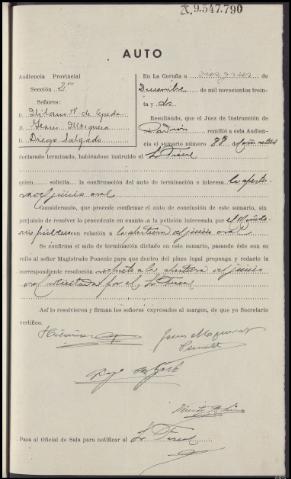 A.9.547.790
AUTO
Audiencia Provincial
Sección 2ª
Señores:
D. Hilario N. de Cepeda
» Jesús Marquina
» Diego Salgado
En La Coruña a
de
Diciembre de mil novecientos trein-
ta y dos
Resultando, que el Juez de Instrucción de
remitió a esta Audien-
cia el sumario número 88 de
declarando terminado, habiéndose instruído el Sr Fiscal
quien solicita la confirmación del auto de terminación e interesa la apertu-
ra del juicio oral
Considerando, que procede confirmar el auto de conclusión de este sumario, sin
perjuicio de resolver lo procedente en cuanto a la petición interesada por el Ministe-
rio público en relación a la apertura del juicio oral
Se confirma el auto de terminación dictado en este sumario, pásende éste con su
rollo al señor Magistrado Ponente para que dentro del plazo legal proponga y redacte la
correspondiente resolución respecto a la apertura del juicio
oral interesada por el Sr Fiscal
Así lo resolvieron y firman los señores expresados al margen, de que yo Secretario
certifico.
Para al Oficial de Sala para notificar al Sr Fiscal